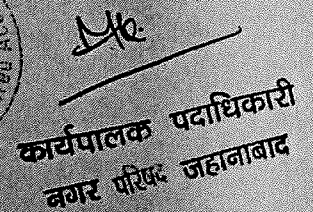 कार्यपालक पदाधिकारी
नगर परिषद जहानाबाद